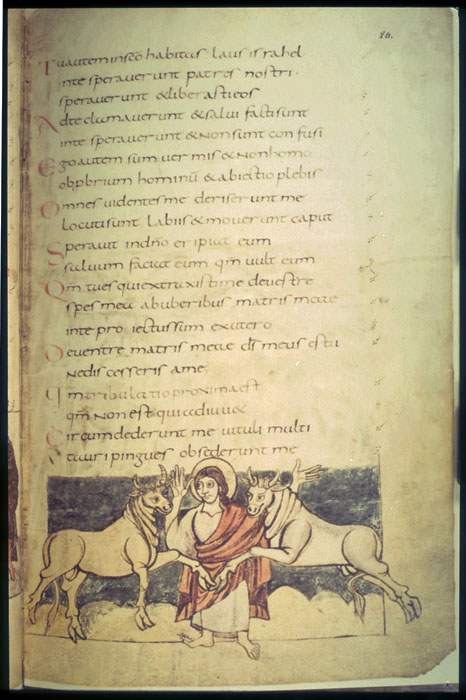 26.
Tu autem in sc̄o habitas laus israhel
inte speraverunt patres nostri·
speraverunt & liberasti eos
Adte clamaverunt & salvi facti sunt
inte speraverunt & non sunt confusi
Ego autem sum vermis & non homo
obprbrium hominū & abiectio plebis
Omnes videntes me deriserunt me
locuti sunt labiis & moverunt caput
Speravit indn̄o eripiat eum
salvum faciat eum qm̄ vult eum
Qm̄ tu es qui extraxisti me deventre
spes mea ab uberibus matris meae
inte proiectus sum ex utero
Deventre matris meae ds̄ meus es tu
nedis cesseris ame;
Qm̄ tribulatio proxima est
qm̄ non est qui adiuv&
Circumdederunt me vituli multi
tauri pingues obsederunt me